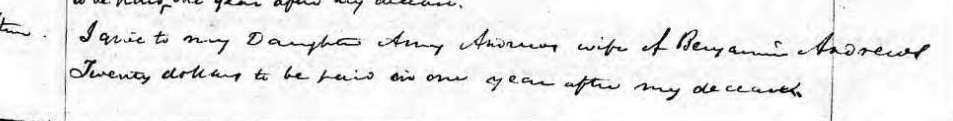 to be paid, one year after my decease.
Item. I give to my Daughter Amy Andrews wife of Benjamin Andrews
Twenty dollars to be paid in one year after my decease.